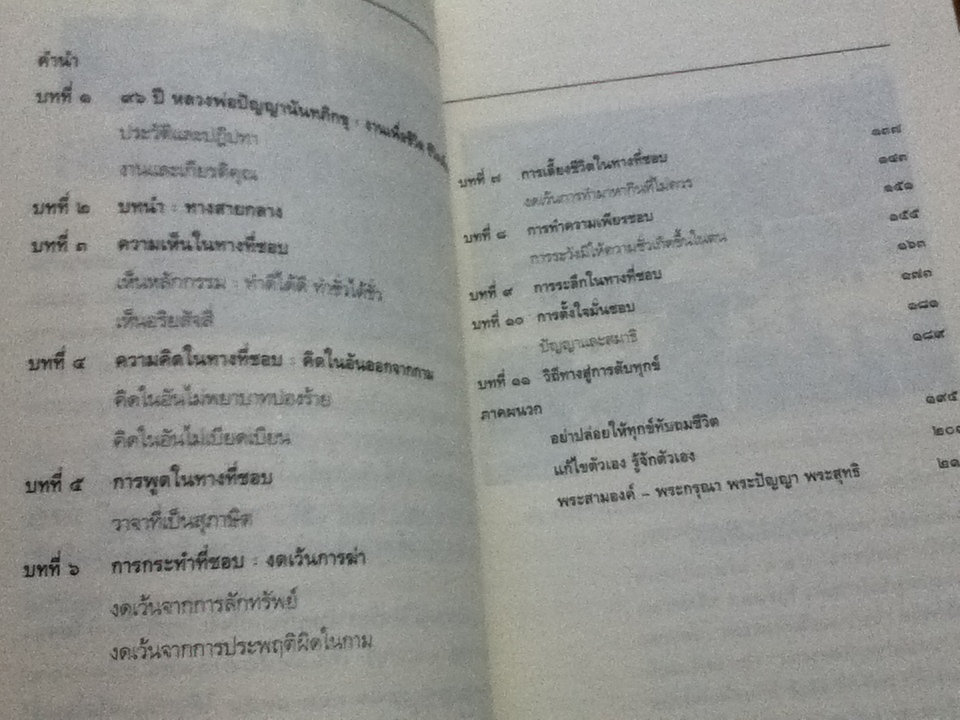 คำนำ
บทที่ ๑ ๙๖ ปี หลวงพ่อปัญญานันทภิกขุ : งานเพื่อชีวิต
ประวัติและปฏิปทา
งานและเกียรติคุณ
บทที่ ๒ บทนำ : ทางสายกลาง
บทที่ ๓ ความเห็นในทางที่ชอบ
เห็นหลักกรรม : ทำดีได้ดี ทำชั่วได้ชั่ว
เห็นอริยสัจสี่
บทที่ ๔ ความคิดในทางที่ชอบ : คิดในอันออกจากกาม
คิดในอันไม่พยาบาทปองร้าย
คิดในอันไม่เบียดเบียน
บทที่ ๕ การพูดในทางที่ชอบ
วาจาที่เป็นสุภาษิต
บทที่ ๖ การกระทำที่ชอบ : งดเว้นการฆ่า
งดเว้นจากการลักทรัพย์
งดเว้นจากการประพฤติผิดในกาม
บทที่ ๗ การเลี้ยงชีวิตในทางที่ชอบ ๑๓๗
งดเว้นการทำมาหากินที่ไม่ควร ๑๔๓
บทที่ ๘ การทำความเพียรชอบ ๑๕๑
การระวังมิให้ความชั่วเกิดขึ้นในตน ๑๕๕
บทที่ ๙ การระลึกในทางที่ชอบ ๑๖๓
บทที่ ๑๐ การตั้งใจมั่นชอบ ๑๗๓
ปัญญาและสมาธิ ๑๘๑
บทที่ ๑๑ วิถีทางสู่การดับทุกข์ ๑๘๙
ภาคผนวก
อย่าปล่อยให้ทุกข์ทับถมชีวิต ๑๙๕
แก้ไขตัวเอง รู้จักตัวเอง
พระสามองค์ – พระกรุณา พระปัญญา พระสุทธิ